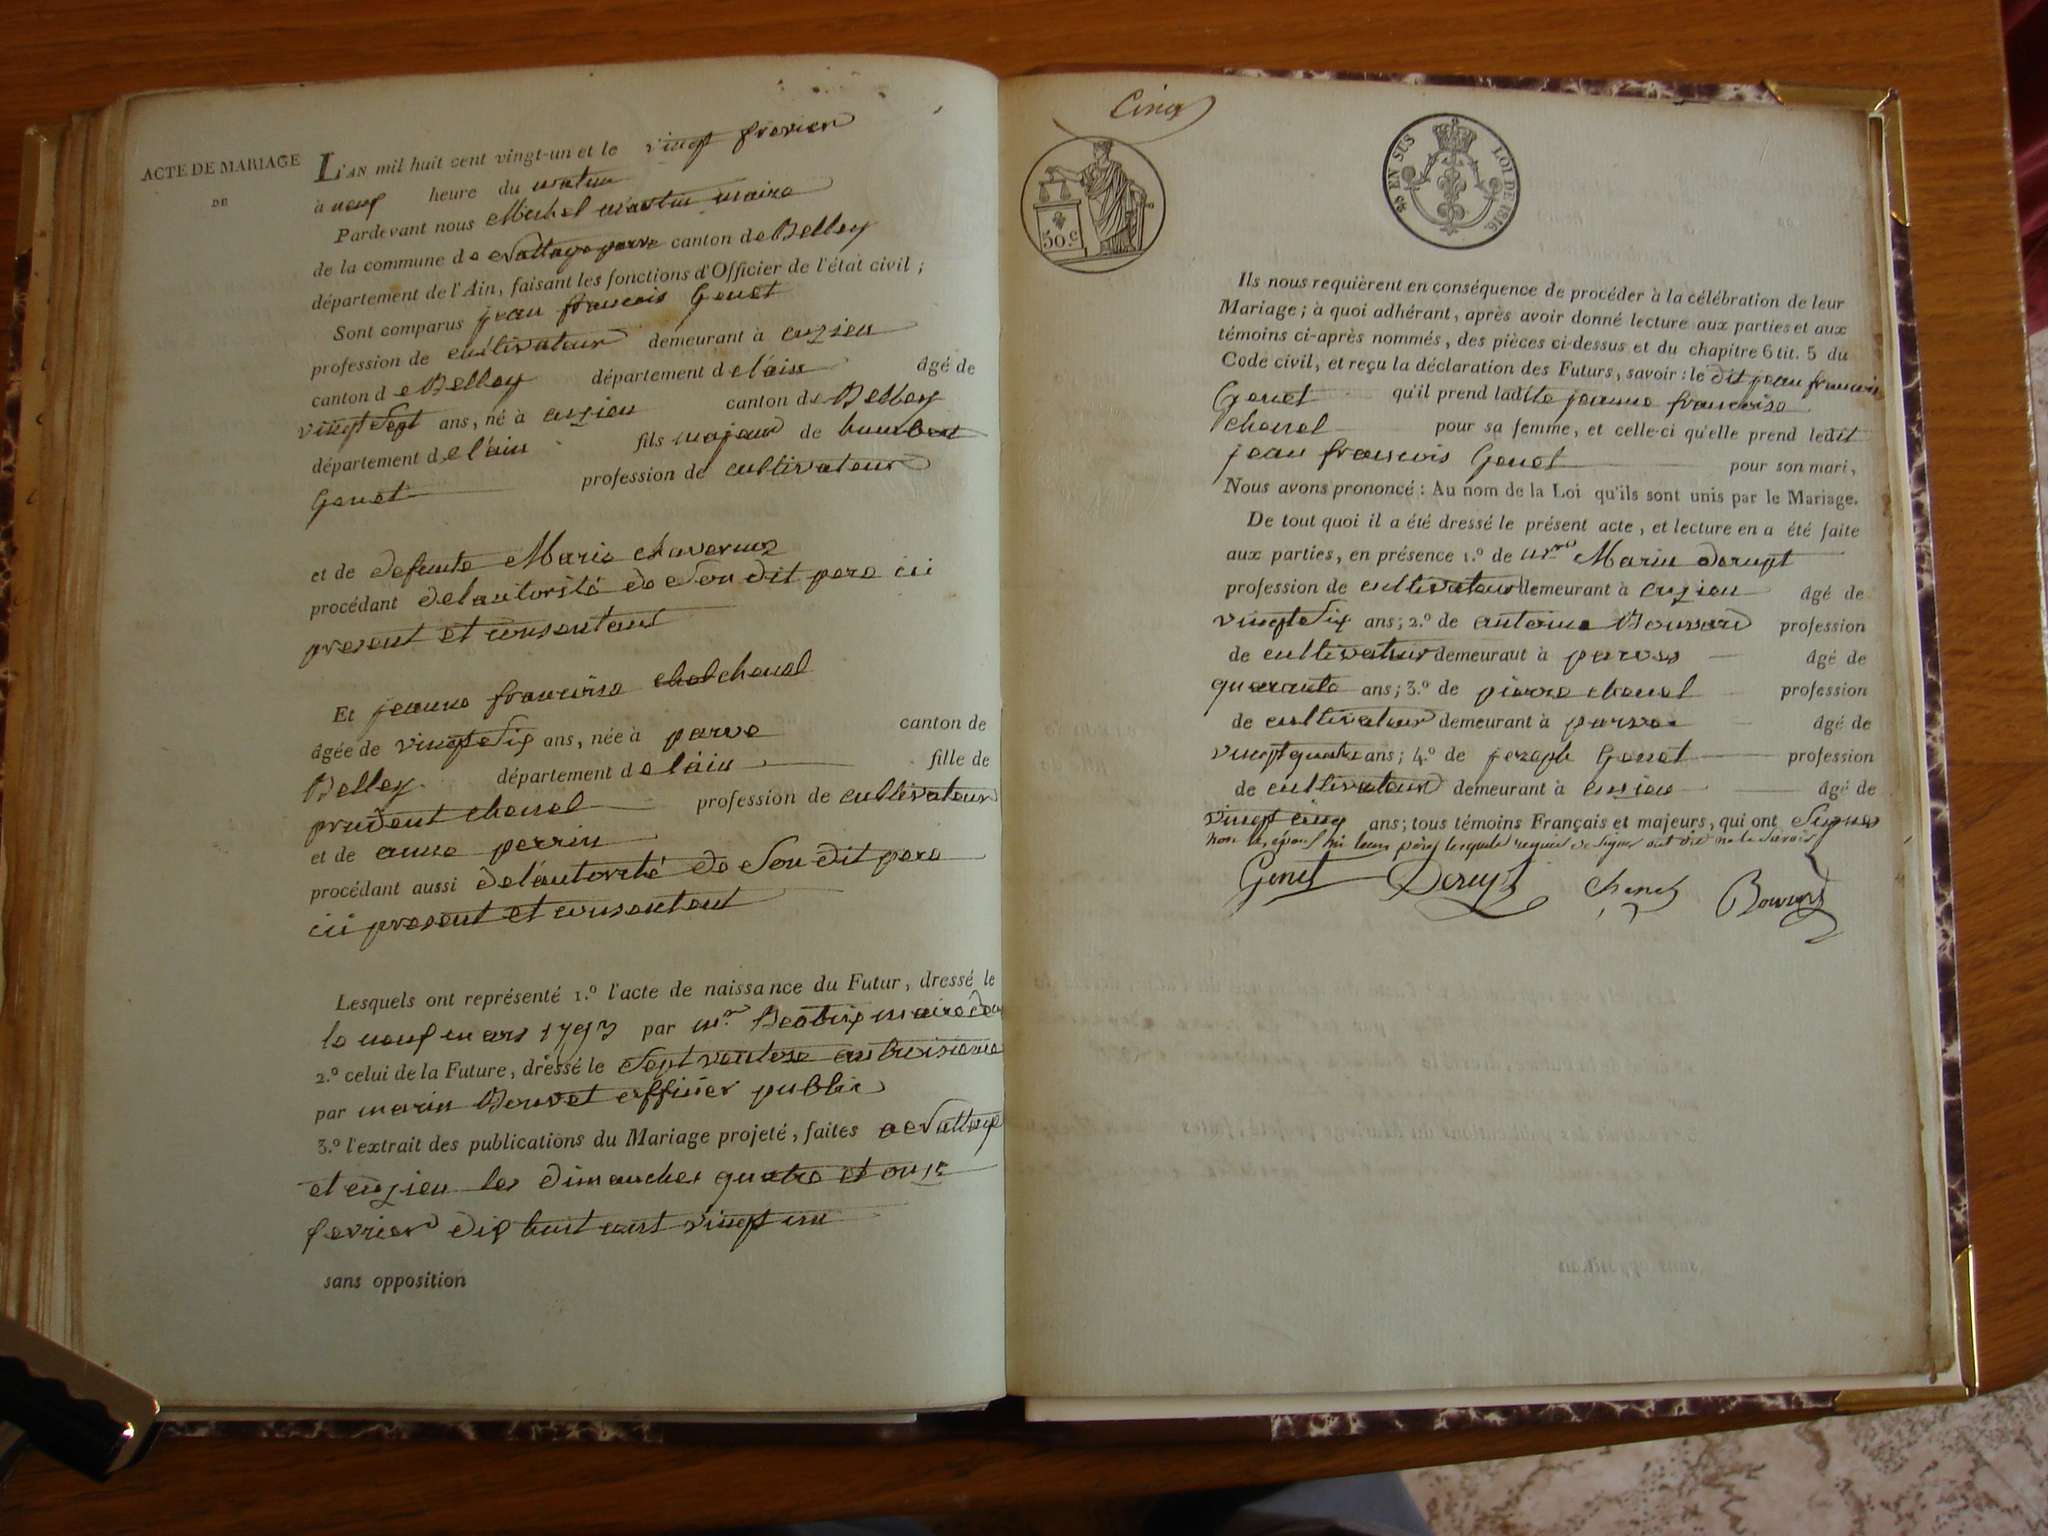 ACTE DE MARIAGE
DE
L'AN mil huit cent vingt-un et le vingt fevrier
à neuf heure du matin
Pardevant nous Michel martin maire
de la commune de parve canton de Belley
département de l'Ain, faisant les fonctions d'Officier de l'état civil ;
Sont comparus jean francois Genet
profession de cultivateur demeurant à cuzieu
canton de Belley département de l'ain âgé de
vingt Sept ans, né à cuzieu canton de Belley
département de l'ain fils majeur de humbert
Genet profession de cultivateur
et de defunte Marie
procédant de lautorité de Son dit pere ici
present et consentant
Et jeanne francoise chenel
âgée de vingt Six ans, née à parve canton de
Belley département de l'ain fille de
prudent chenel profession de cultivateur
et de anne perrin
procédant aussi de l'autorité de Son dit pere
ici present et consentent
Lesquels ont représenté 1.º l'acte de naissance du Futur, dressé le
le neuf mars 1793 par mr Beatrix maire
2.º celui de la Future, dressé le Sept ventose an troisieme
par marin Bouvet officier public
3.º l'extrait des publications du Mariage projeté, faites
et cuzieu les dimanches quatre et onze
fevrier dix huit cent vingt un
sans opposition
Cinq
50.c
EN SUS LOI DE 1816
Ils nous requièrent en conséquence de procéder à la célébration de leur
Mariage ; à quoi adhérant, après avoir donné lecture aux parties et aux
témoins ci-après nommés, des pièces ci-dessus et du chapitre 6 tit. 5 du
Code civil, et reçu la déclaration des Futurs, savoir : le dit jean francois
Genet qu'il prend ladite jeanne francoise
chenel pour sa femme, et celle-ci qu'elle prend ledit
jean francois Genet pour son mari,
Nous avons prononcé : Au nom de la Loi qu'ils sont unis par le Mariage.
De tout quoi il a été dressé le présent acte, et lecture en a été faite
aux parties, en présence 1.º de Marin derupt
profession de cultivateur demeurant à cuzieu âgé de
vingt Six ans ; 2.º de antoine Bouvard profession
de cultivateur demeurant à parves âgé de
quarante ans ; 3.º de pierre chenel profession
de cultivateur demeurant à parve âgé de
vingt quatre ans ; 4.º de joseph Genet profession
de cultivateur demeurant à cuzieu âgé de
vingt cinq ans ; tous témoins Français et majeurs, qui ont Signes
non les épous ni leurs péres lesquels requis de signer ont dit ne le Savoir
Genet Derupt Chenel Bouvard